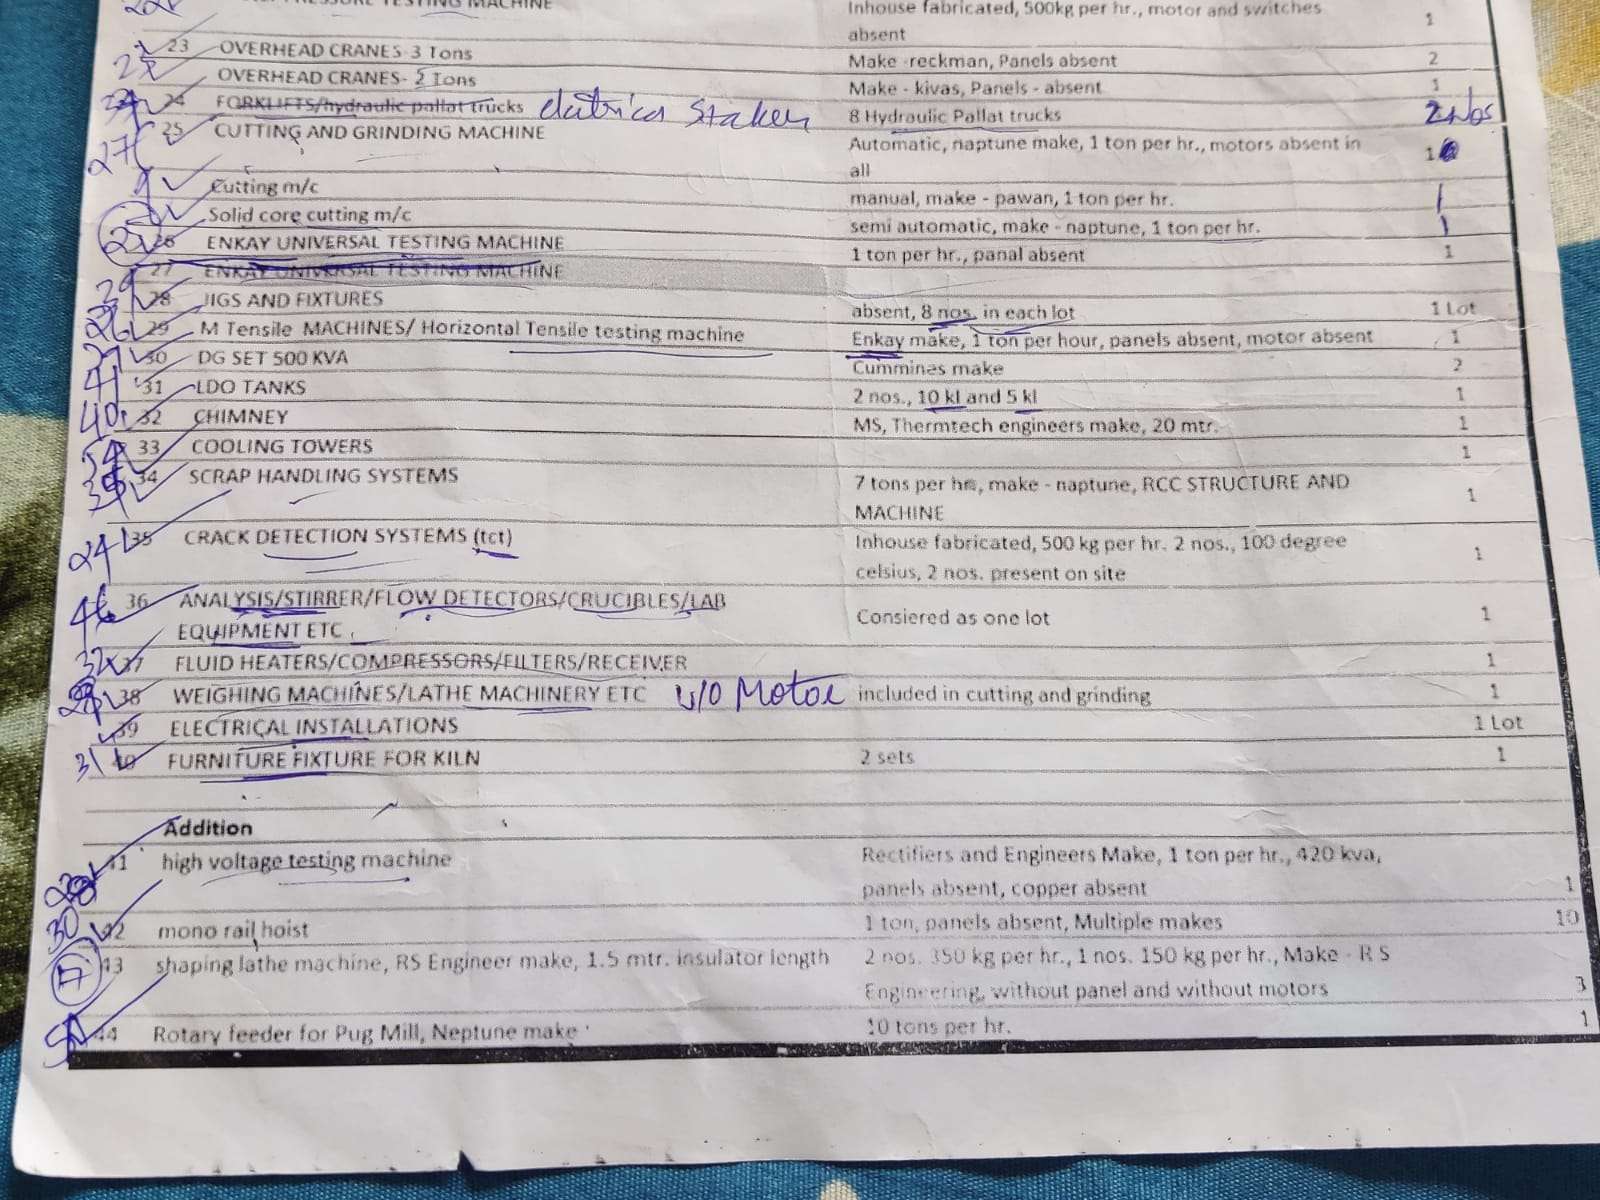 PRESSURE TESTING MACHINE Inhouse fabricated, 500kg per hr., motor and switches absent 1
23 OVERHEAD CRANES-3 Tons Make -reckman, Panels absent 2
OVERHEAD CRANES- 2 Tons Make - kivas, Panels - absent 1
24 FORKLIFTS/hydraulic pallat trucks 8 Hydraulic Pallat trucks 2 Nos
27 25 CUTTING AND GRINDING MACHINE Automatic, naptune make, 1 ton per hr., motors absent in all 1
Cutting m/c manual, make - pawan, 1 ton per hr. 1
Solid core cutting m/c semi automatic, make - naptune, 1 ton per hr. 1
26 ENKAY UNIVERSAL TESTING MACHINE 1 ton per hr., panal absent 1
27 ENKAY UNIVERSAL TESTING MACHINE
28 JIGS AND FIXTURES absent, 8 nos. in each lot 1 Lot
29 M Tensile MACHINES/ Horizontal Tensile testing machine Enkay make, 1 ton per hour, panels absent, motor absent 1
30 DG SET 500 KVA Cummines make 2
41 31 LDO TANKS 2 nos., 10 kl and 5 kl 1
40 32 CHIMNEY MS, Thermtech engineers make, 20 mtr. 1
33 COOLING TOWERS 1
34 SCRAP HANDLING SYSTEMS 7 tons per hr, make - naptune, RCC STRUCTURE AND MACHINE 1
24 35 CRACK DETECTION SYSTEMS (tct) Inhouse fabricated, 500 kg per hr. 2 nos., 100 degree celsius, 2 nos. present on site 1
36 ANALYSIS/STIRRER/FLOW DETECTORS/CRUCIBLES/LAB
EQUIPMENT ETC Consiered as one lot 1
32 37 FLUID HEATERS/COMPRESSORS/FILTERS/RECEIVER 1
38 WEIGHING MACHINES/LATHE MACHINERY ETC W/O Motor included in cutting and grinding 1
39 ELECTRICAL INSTALLATIONS 1 Lot
31 40 FURNITURE FIXTURE FOR KILN 2 sets 1
Addition
41 high voltage testing machine Rectifiers and Engineers Make, 1 ton per hr., 420 kva, panels absent, copper absent 1
30 42 mono rail hoist 1 ton, panels absent, Multiple makes 10
43 shaping lathe machine, RS Engineer make, 1.5 mtr. insulator length 2 nos. 350 kg per hr., 1 nos. 150 kg per hr., Make - R S Engineering, without panel and without motors 3
44 Rotary feeder for Pug Mill, Neptune make 10 tons per hr. 1